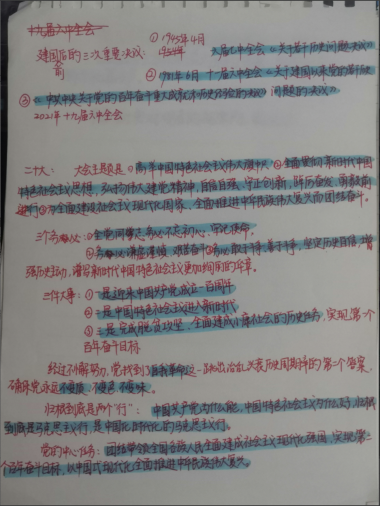 十九届六中全会
① 1945年4月
建国后的三次重要决议: 六届七中全会《关于若干历史问题决议》
前
② 1981年6月 十一届六中全会《关于建国以来党的若干历史
③《中共中央关于党的百年奋斗重大成就和历史经验的决议》 问题的决议》
2021年十九届六中全会
二十大: 大会主题是① 高举中国特色社会主义伟大旗帜②全面贯彻新时代中国
特色社会主义思想,弘扬伟大建党精神,自信自强、守正创新,踔厉奋发、勇毅前
进③为全面建设社会主义现代化国家、全面推进中华民族伟大复兴而团结奋斗。
三个务必: ①全党同志务必不忘初心、牢记使命。
②务必谦虚谨慎、艰苦奋斗③务必敢于斗争善于斗争,坚定历史自信,增
强历史主动,谱写新时代中国特色社会主义更加绚丽的华章。
三件大事: ①一是迎来中国共产党成立一百周年
②二是中国特色社会主义进入新时代
③三是完成脱贫攻坚、全面建成小康社会的历史任务,实现第一个
百年奋斗目标
经过不懈努力,党找到了自我革命这一跳出治乱兴衰历史周期率的第二个答案,
确保党永远不变质、不变色、不变味。
归根到底是两个“行”: 中国共产党为什么能,中国特色社会主义为什么好,归根
到底是马克思主义行,是中国化时代化的马克思主义行。
党的中心任务: 团结带领全国各族人民全面建成社会主义现代化强国、实现第二
个百年奋斗目标,以中国式现代化全面推进中华民族伟大复兴。